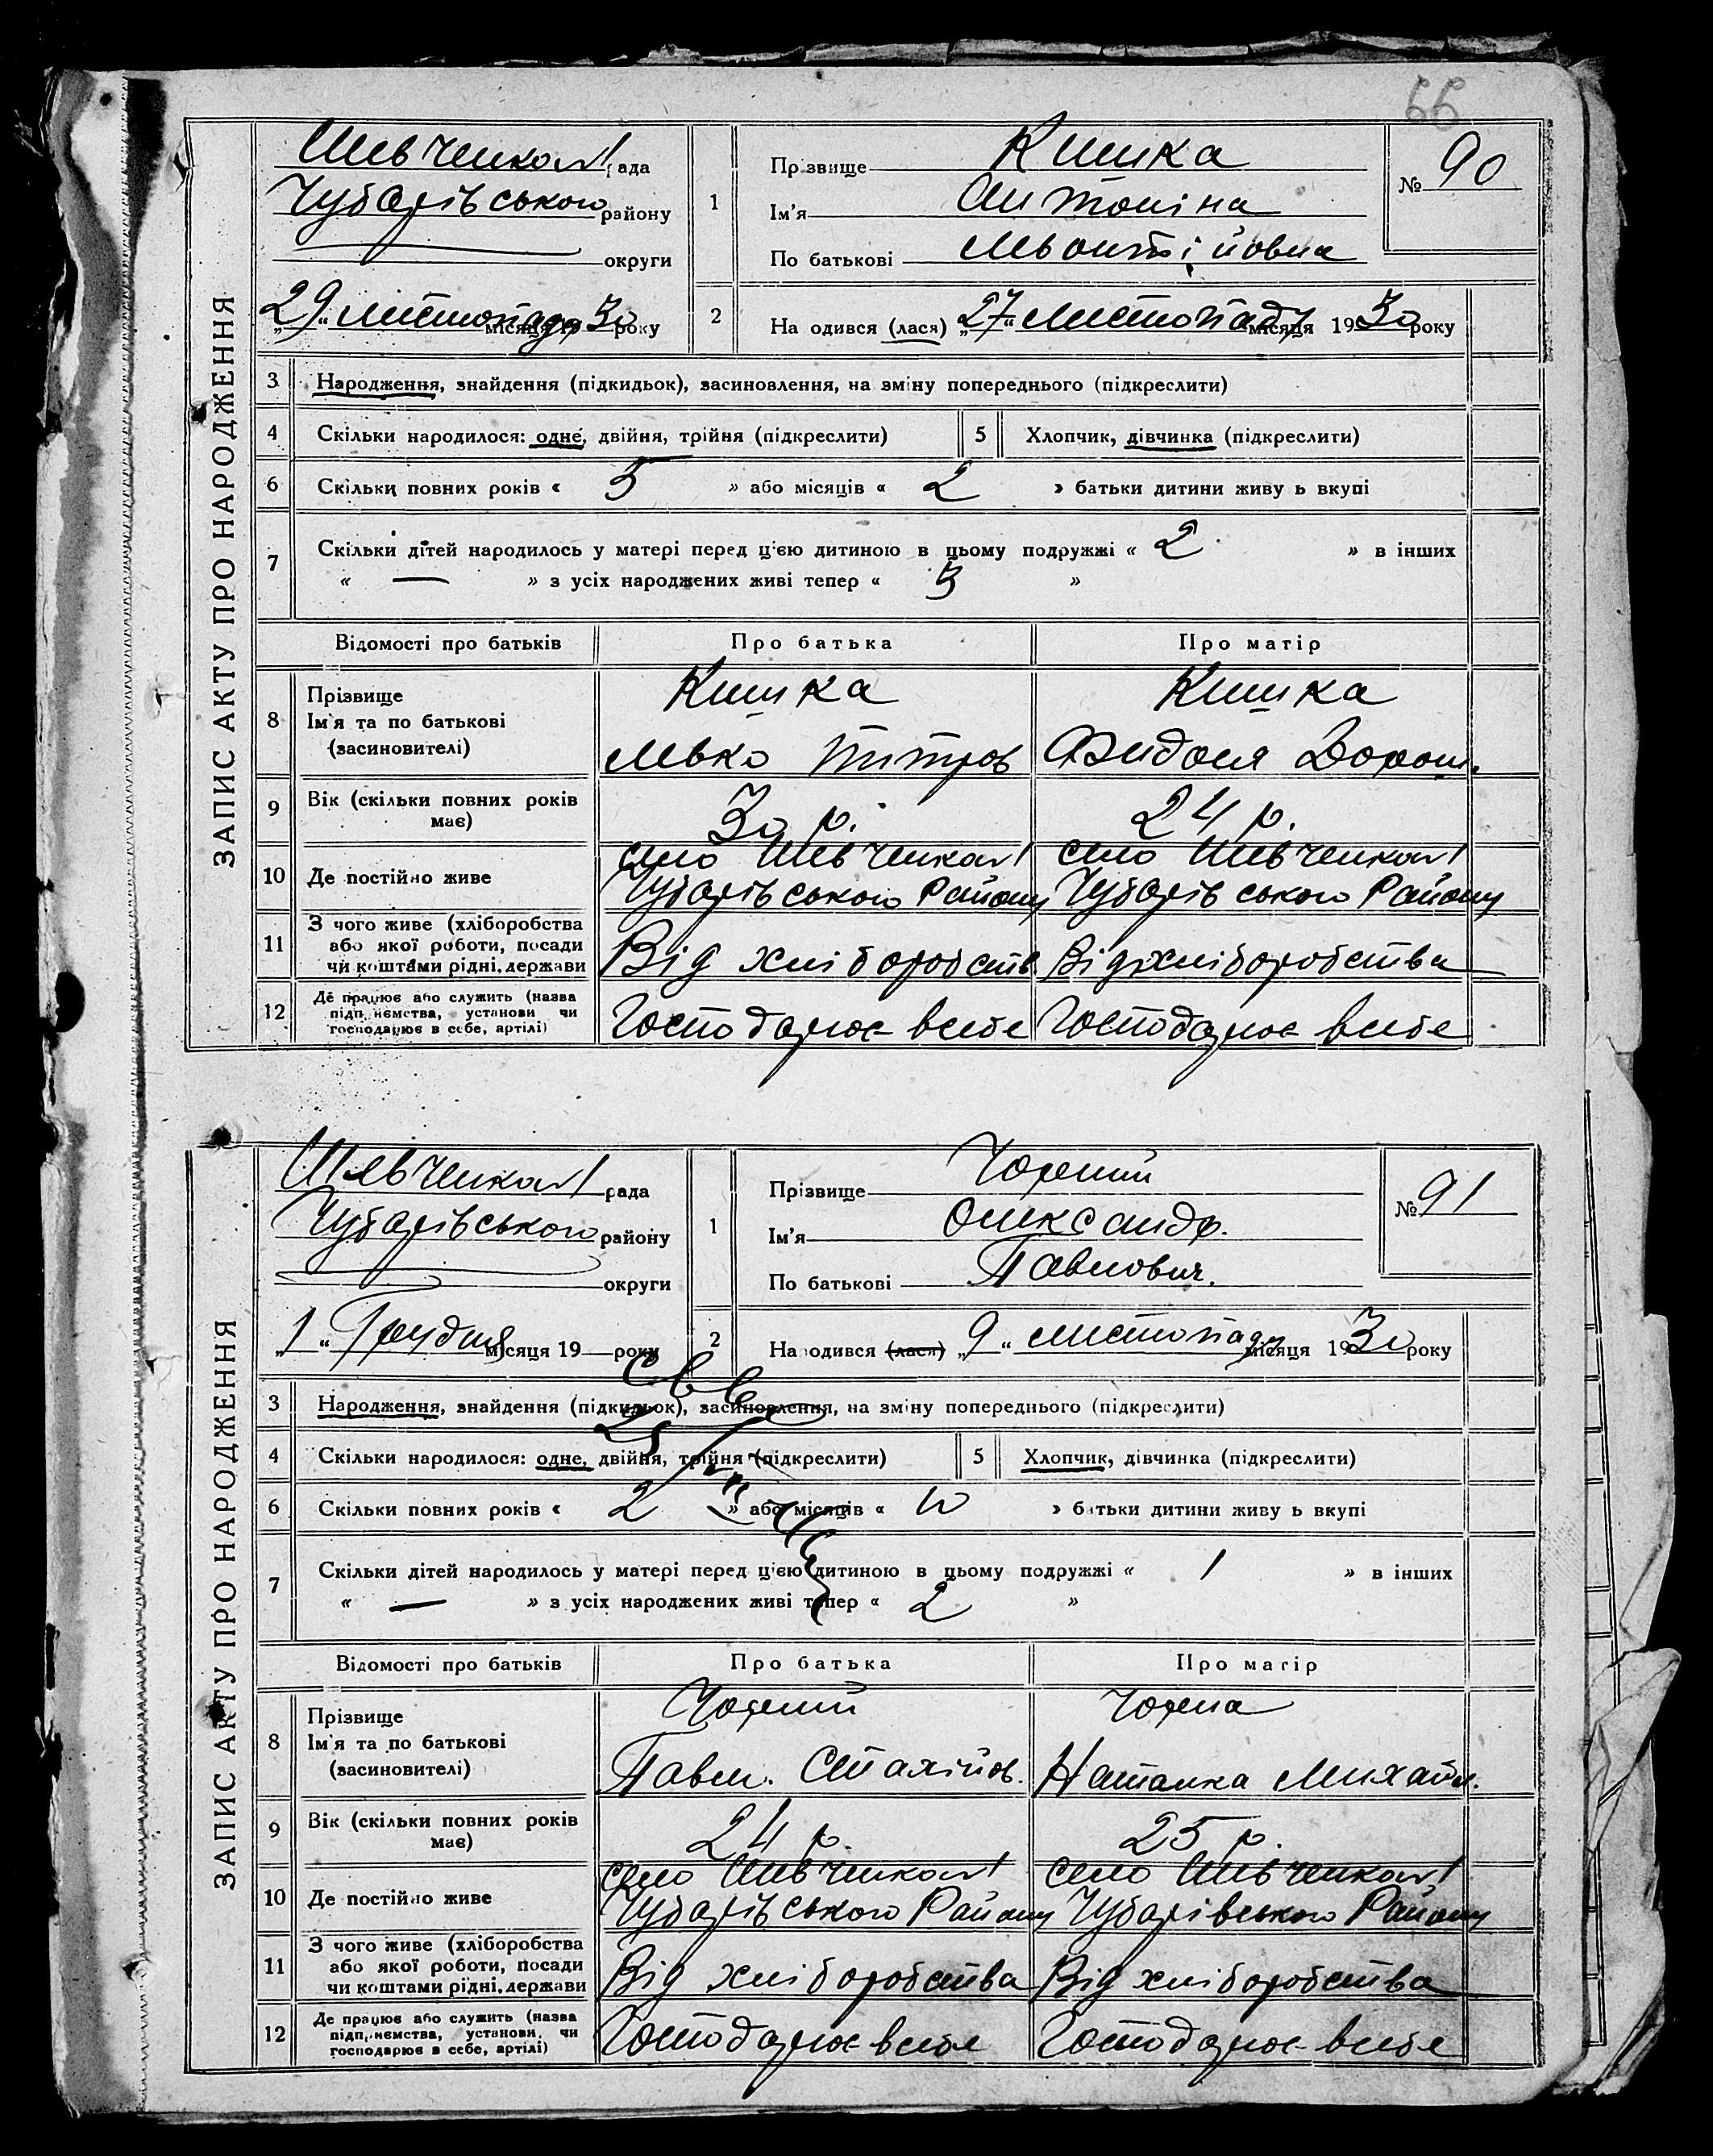 66
ЗАПИС АКТУ ПРО НАРОДЖЕННЯ
Шевченков рада
Чубарівського району
округи
„29“ листопада місяця 30 року
1
Прізвище Кишка
Ім'я Антоніна
По батькові
№ 90
2
На одився (лася) „27“ Листопаду місяця 1930 року
3 Народження, знайдення (підкидьок), засиновлення, на зміну попереднього (підкреслити)
4 Скільки народилося: одне, двійня, трійня (підкреслити) 5 Хлопчик, дівчинка (підкреслити)
6 Скільки повних років « 5 » або місяців « 2 » батьки дитини живу ь вкупі
7 Скільки дітей народилось у матері перед цією дитиною в цьому подружжі « 2 » в інших
« — » з усіх народжених живі тепер « 3 »
Відомості про батьків Про батька Про матір
8 Прізвище
Ім'я та по батькові
(засиновителі)
Кишка Кишка
Левко Дорош.
9 Вік (скільки повних років має)
30 р. 24 р.
10 Де постійно живе
село Шевченков село Шевченков
Чубарівського Району Чубарівського Району
11 З чого живе (хліборобства
або якої роботи, посади
чи коштами рідні, держави
Від хліборобств Від хліборобства
12 Де працює або служить (назва
підприємства, установи чи
господарює в себе, артілі)
Господарює всебе Господарює всебе
ЗАПИС АКТУ ПРО НАРОДЖЕННЯ
Шевченков рада
Чубарівського району
округи
„1“ Грудня місяця 19 року
1
Прізвище Чорний
Ім'я Олександр.
По батькові Павлович.
№ 91
2
Народився (лася) „9“ листопаду місяця 1930 року
3 Народження, знайдення (підкидьок), засиновлення, на зміну попереднього (підкреслити)
4 Скільки народилося: одне, двійня, трійня (підкреслити) 5 Хлопчик, дівчинка (підкреслити)
6 Скільки повних років « 2 » або місяців « 10 » батьки дитини живу ь вкупі
7 Скільки дітей народилось у матері перед цією дитиною в цьому подружжі « 1 » в інших
« — » з усіх народжених живі тепер « 2 »
Відомості про батьків Про батька Про матір
8 Прізвище
Ім'я та по батькові
(засиновителі)
Чорний Чорна
Павл. Стахійов. Наталка Михайл.
9 Вік (скільки повних років має)
24 р. 25 р.
10 Де постійно живе
село Шевченков село Шевченков
Чубарівського Району Чубарівського Району
11 З чого живе (хліборобства
або якої роботи, посади
чи коштами рідні, держави
Від хліборобства Від хліборобства
12 Де працює або служить (назва
підприємства, установи, чи
господарює в себе, артілі)
Господарює всебе Господарює всебе